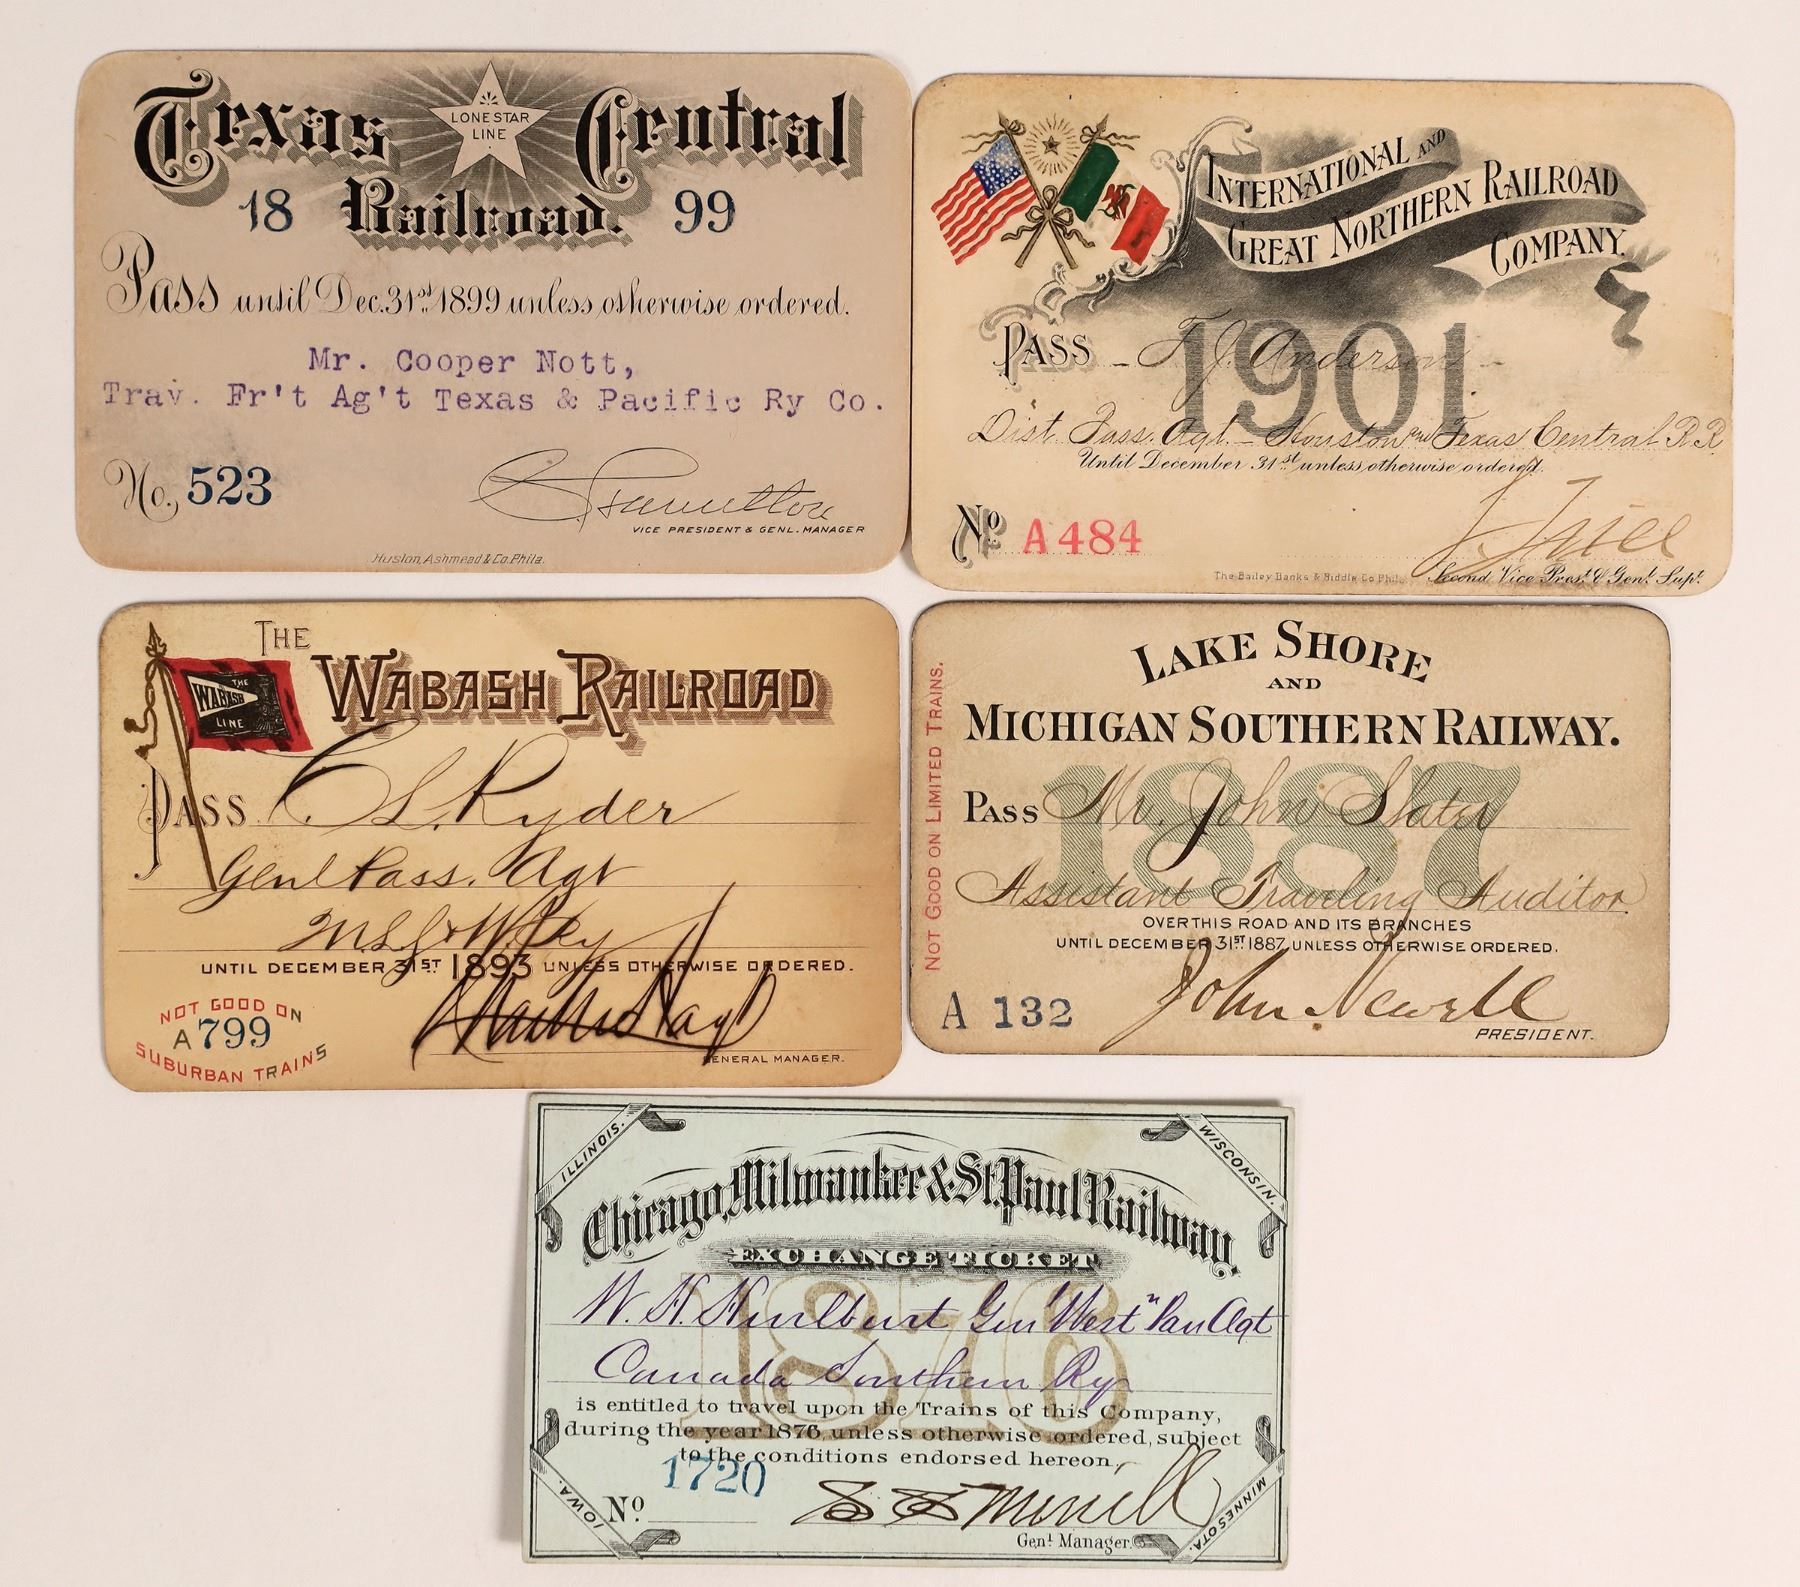 Texas Central
LONE STAR
LINE
Railroad.
18 99
Pass until Dec. 31st 1899 unless otherwise ordered.
Mr. Cooper Nott,
Trav. Fr't Ag't Texas & Pacific Ry Co.
No. 523
VICE PRESIDENT & GENL. MANAGER
Huston, Ashmead & Co. Phila.
INTERNATIONAL AND
GREAT NORTHERN RAILROAD
COMPANY.
1901
PASS F. J. Anderson
Dist. Pass. Agt. - Houston and Texas Central R R
Until December 31st unless otherwise ordered.
No A 484
The Bailey Banks & Biddle Co Phila
Second Vice Prest. & Genl. Supt.
THE
WABASH RAILROAD
THE
WABASH
LINE
PASS C. S. Ryder
Genl Pass. Agt
UNTIL DECEMBER 31ST 1893 UNLESS OTHERWISE ORDERED.
NOT GOOD ON
A 799
SUBURBAN TRAINS
GENERAL MANAGER.
NOT GOOD ON LIMITED TRAINS.
LAKE SHORE
AND
MICHIGAN SOUTHERN RAILWAY.
1887
PASS Mr. John Slater
Assistant Traveling Auditor
OVER THIS ROAD AND ITS BRANCHES
UNTIL DECEMBER 31ST 1887 UNLESS OTHERWISE ORDERED.
A 132
John Newell
PRESIDENT.
ILLINOIS.
WISCONSIN.
Chicago, Milwaukee & St. Paul Railway.
EXCHANGE TICKET
1876
W. H. Hurlburt Gen "West" Pass Agt
Canada Southern Ry
is entitled to travel upon the Trains of this Company,
during the year 1876, unless otherwise ordered, subject
to the conditions endorsed hereon.
No. 1720
S S Merrill
Genl Manager.
IOWA.
MINNESOTA.